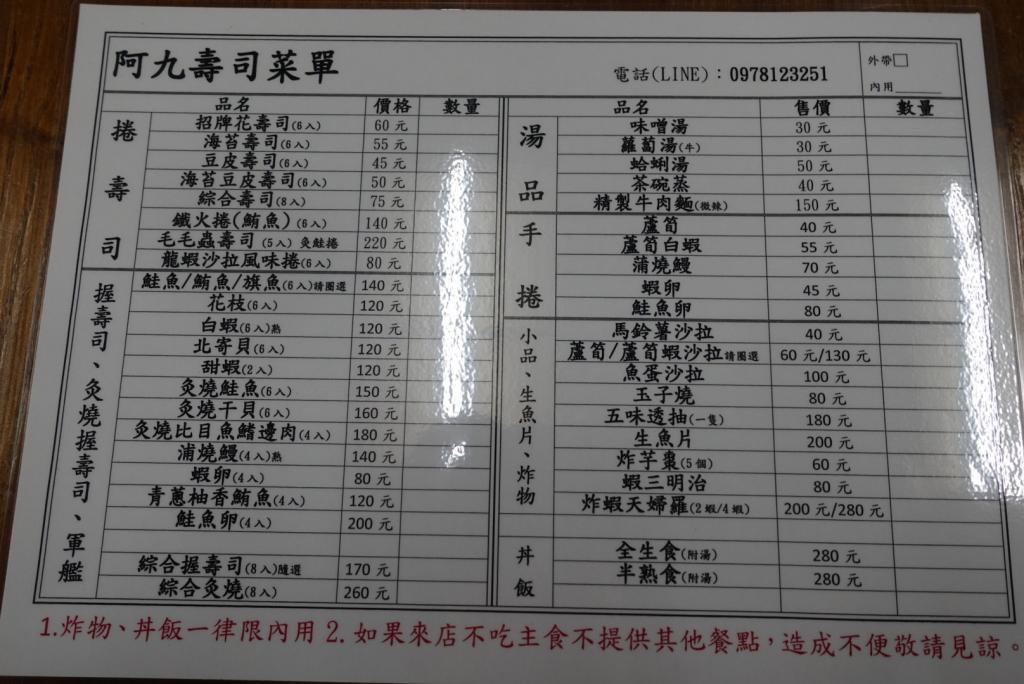 阿九壽司菜單
電話(LINE)：0978123251
外帶□
內用______
品名 價格 數量
捲壽司
招牌花壽司(6入) 60 元
海苔壽司(6入) 55 元
豆皮壽司(6入) 45 元
海苔豆皮壽司(6入) 50 元
綜合壽司(8入) 75 元
鐵火捲(鮪魚)(6入) 140 元
毛毛蟲壽司(5入)炙鮭捲 220 元
龍蝦沙拉風味捲(6入) 80 元
握壽司、炙燒握壽司、軍艦
鮭魚/鮪魚/旗魚(6入)請圈選 140 元
花枝(6入) 120 元
白蝦(6入)熟 120 元
北寄貝(6入) 120 元
甜蝦(2入) 120 元
炙燒鮭魚(6入) 150 元
炙燒干貝(6入) 160 元
炙燒比目魚鰭邊肉(4入) 180 元
浦燒鰻(4入)熟 140 元
蝦卵(4入) 80 元
青蔥柚香鮪魚(4入) 120 元
鮭魚卵(4入) 200 元
綜合握壽司(8入)隨選 170 元
綜合炙燒(8入) 260 元
品名 售價 數量
湯品
味噌湯 30 元
蘿蔔湯(牛) 30 元
蛤蜊湯 50 元
茶碗蒸 40 元
精製牛肉麵(微辣) 150 元
手捲
蘆筍 40 元
蘆筍白蝦 55 元
蒲燒鰻 70 元
蝦卵 45 元
鮭魚卵 80 元
小品、生魚片、炸物
馬鈴薯沙拉 40 元
蘆筍/蘆筍蝦沙拉請圈選 60 元/130 元
魚蛋沙拉 100 元
玉子燒 80 元
五味透抽(一隻) 180 元
生魚片 200 元
炸芋棗(5個) 60 元
蝦三明治 80 元
炸蝦天婦羅(2蝦/4蝦) 200 元/280 元
丼飯
全生食(附湯) 280 元
半熟食(附湯) 280 元
1.炸物、丼飯一律限內用 2. 如果來店不吃主食不提供其他餐點，造成不便敬請見諒。